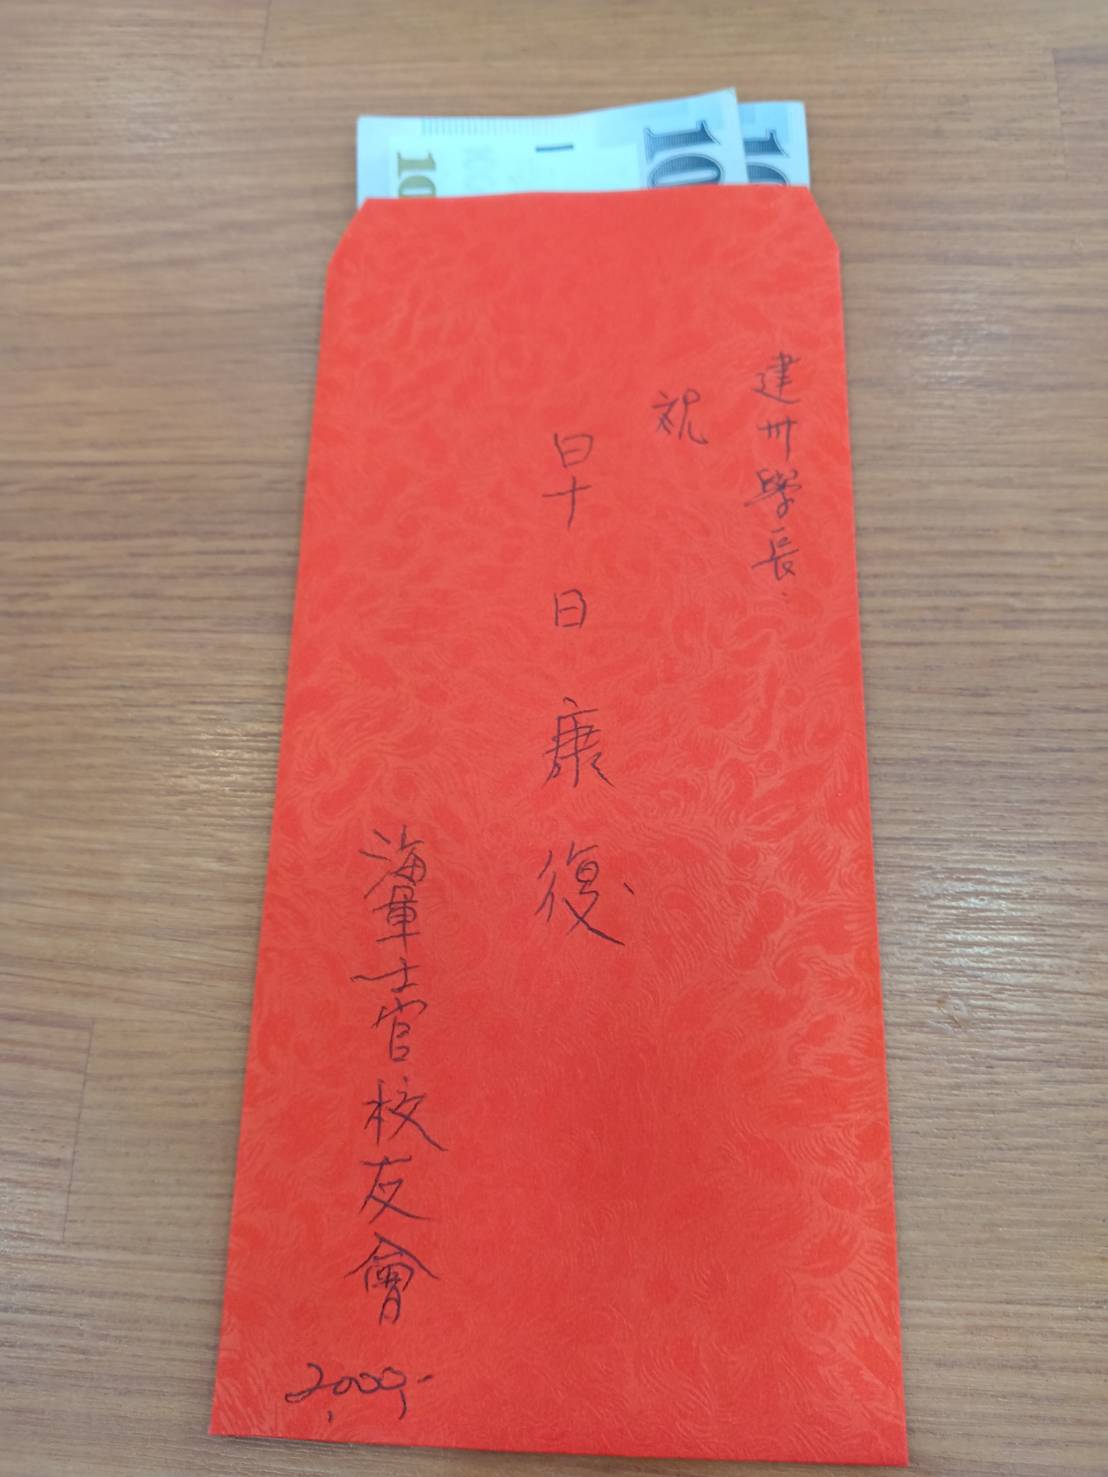 建卅學長
祝
早日康復
海軍士官校友會
2,000,-
10
10
10